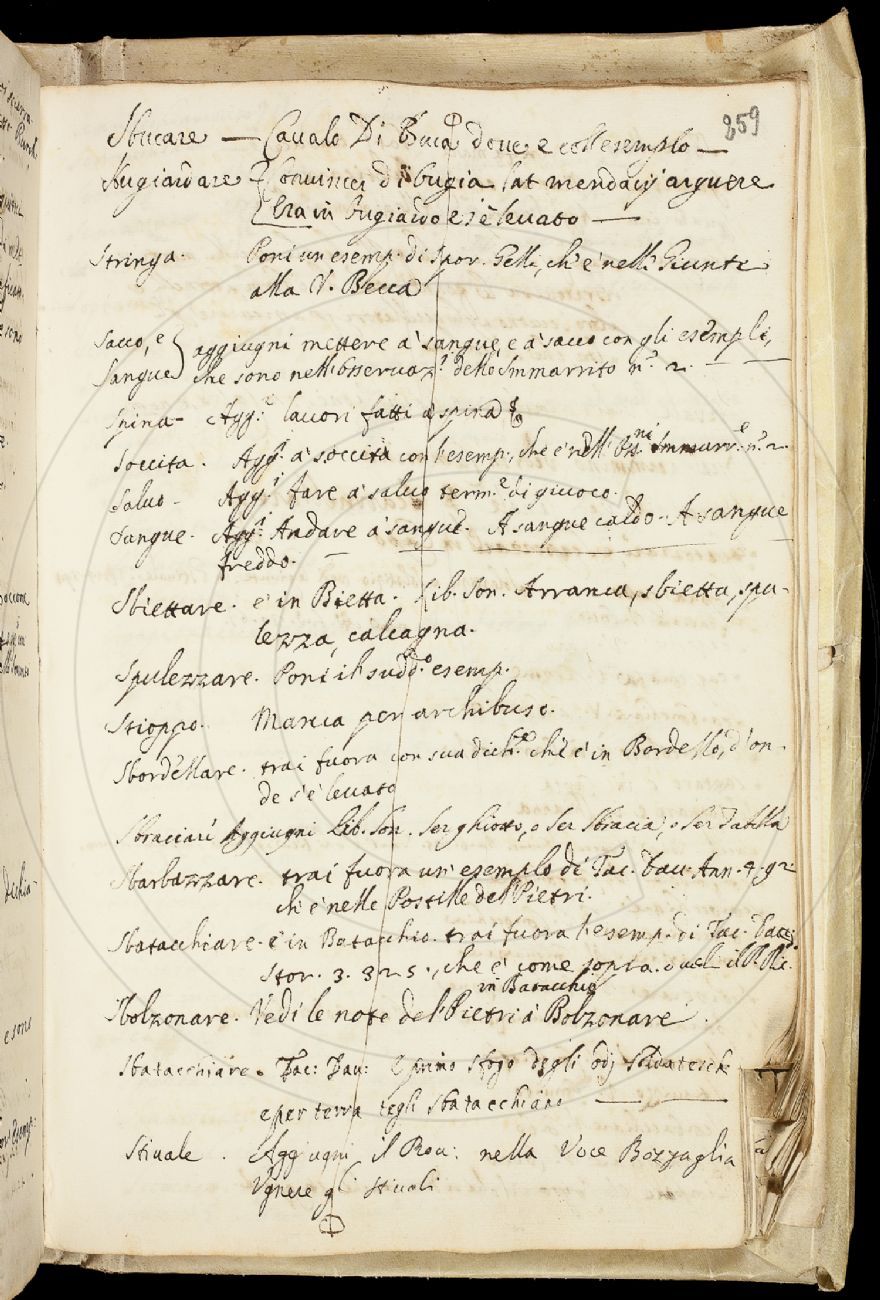 259
Sbucare — Cavalo Di Buca dove e coll esemplo —
Sbugiardare { Convincer di bugia lat mendacij arguere
{ Era in bugiardo e s'è levato —
Stringa. Poni un esemp. di Spor. Gelli, ch' è nelle Giunte
alla V. Becca
Sacco, e } aggiugni mettere a' sangue, e a' sacco con gli esempli,
Sangue } che sono nell'Osservaz.i dello Smarrito n.o 2.
Spina - Agg.i lavori fatti a spina
Soccita. Agg.i a' soccita con l'esemp., che è nell' Oss.ni Smarr.o n.o 2.
Salvo - Agg.i fare a' salvo term.e di giuoco.
Sangue. Agg.i Andare a' sangue. A sangue caldo. A sangue
freddo.
Sbiettare. è in Bietta. Lib. Son. Arranca, sbietta, spu-
lezza, calcagna.
Spulezzare. Poni il sudd.o esemp.
Stioppo. Manca per archibuso.
Sbordellare. trai fuora con sua dich.ne ch'è in Bordello, d'on-
de s'è levato
Sbraciare Aggiugni Lib. Son. Ser ghiotto, o Ser Sbracia, o Ser Tabella
Sbarbazzare. trai fuora un' esemplo di Tac. Dav. Ann. 4. 92.
ch' è nelle Postille del Pietri.
Sbatacchiare. è in Batacchio. trai fuora l'esemp. di Tac. Dav.
Stor. 3. 325., che è come sopra.
in Batacchio
Sbolzonare. Vedi le note del Pietri a Bolzonare.
Sbatacchiare. Tac: Dav: E primo sfogo degli odj Soldatesch
e per terra segli sbatacchiano —
Stivale. Aggiugni il Rov: nella Voce Bozzaglia
Vgnere gli stivali